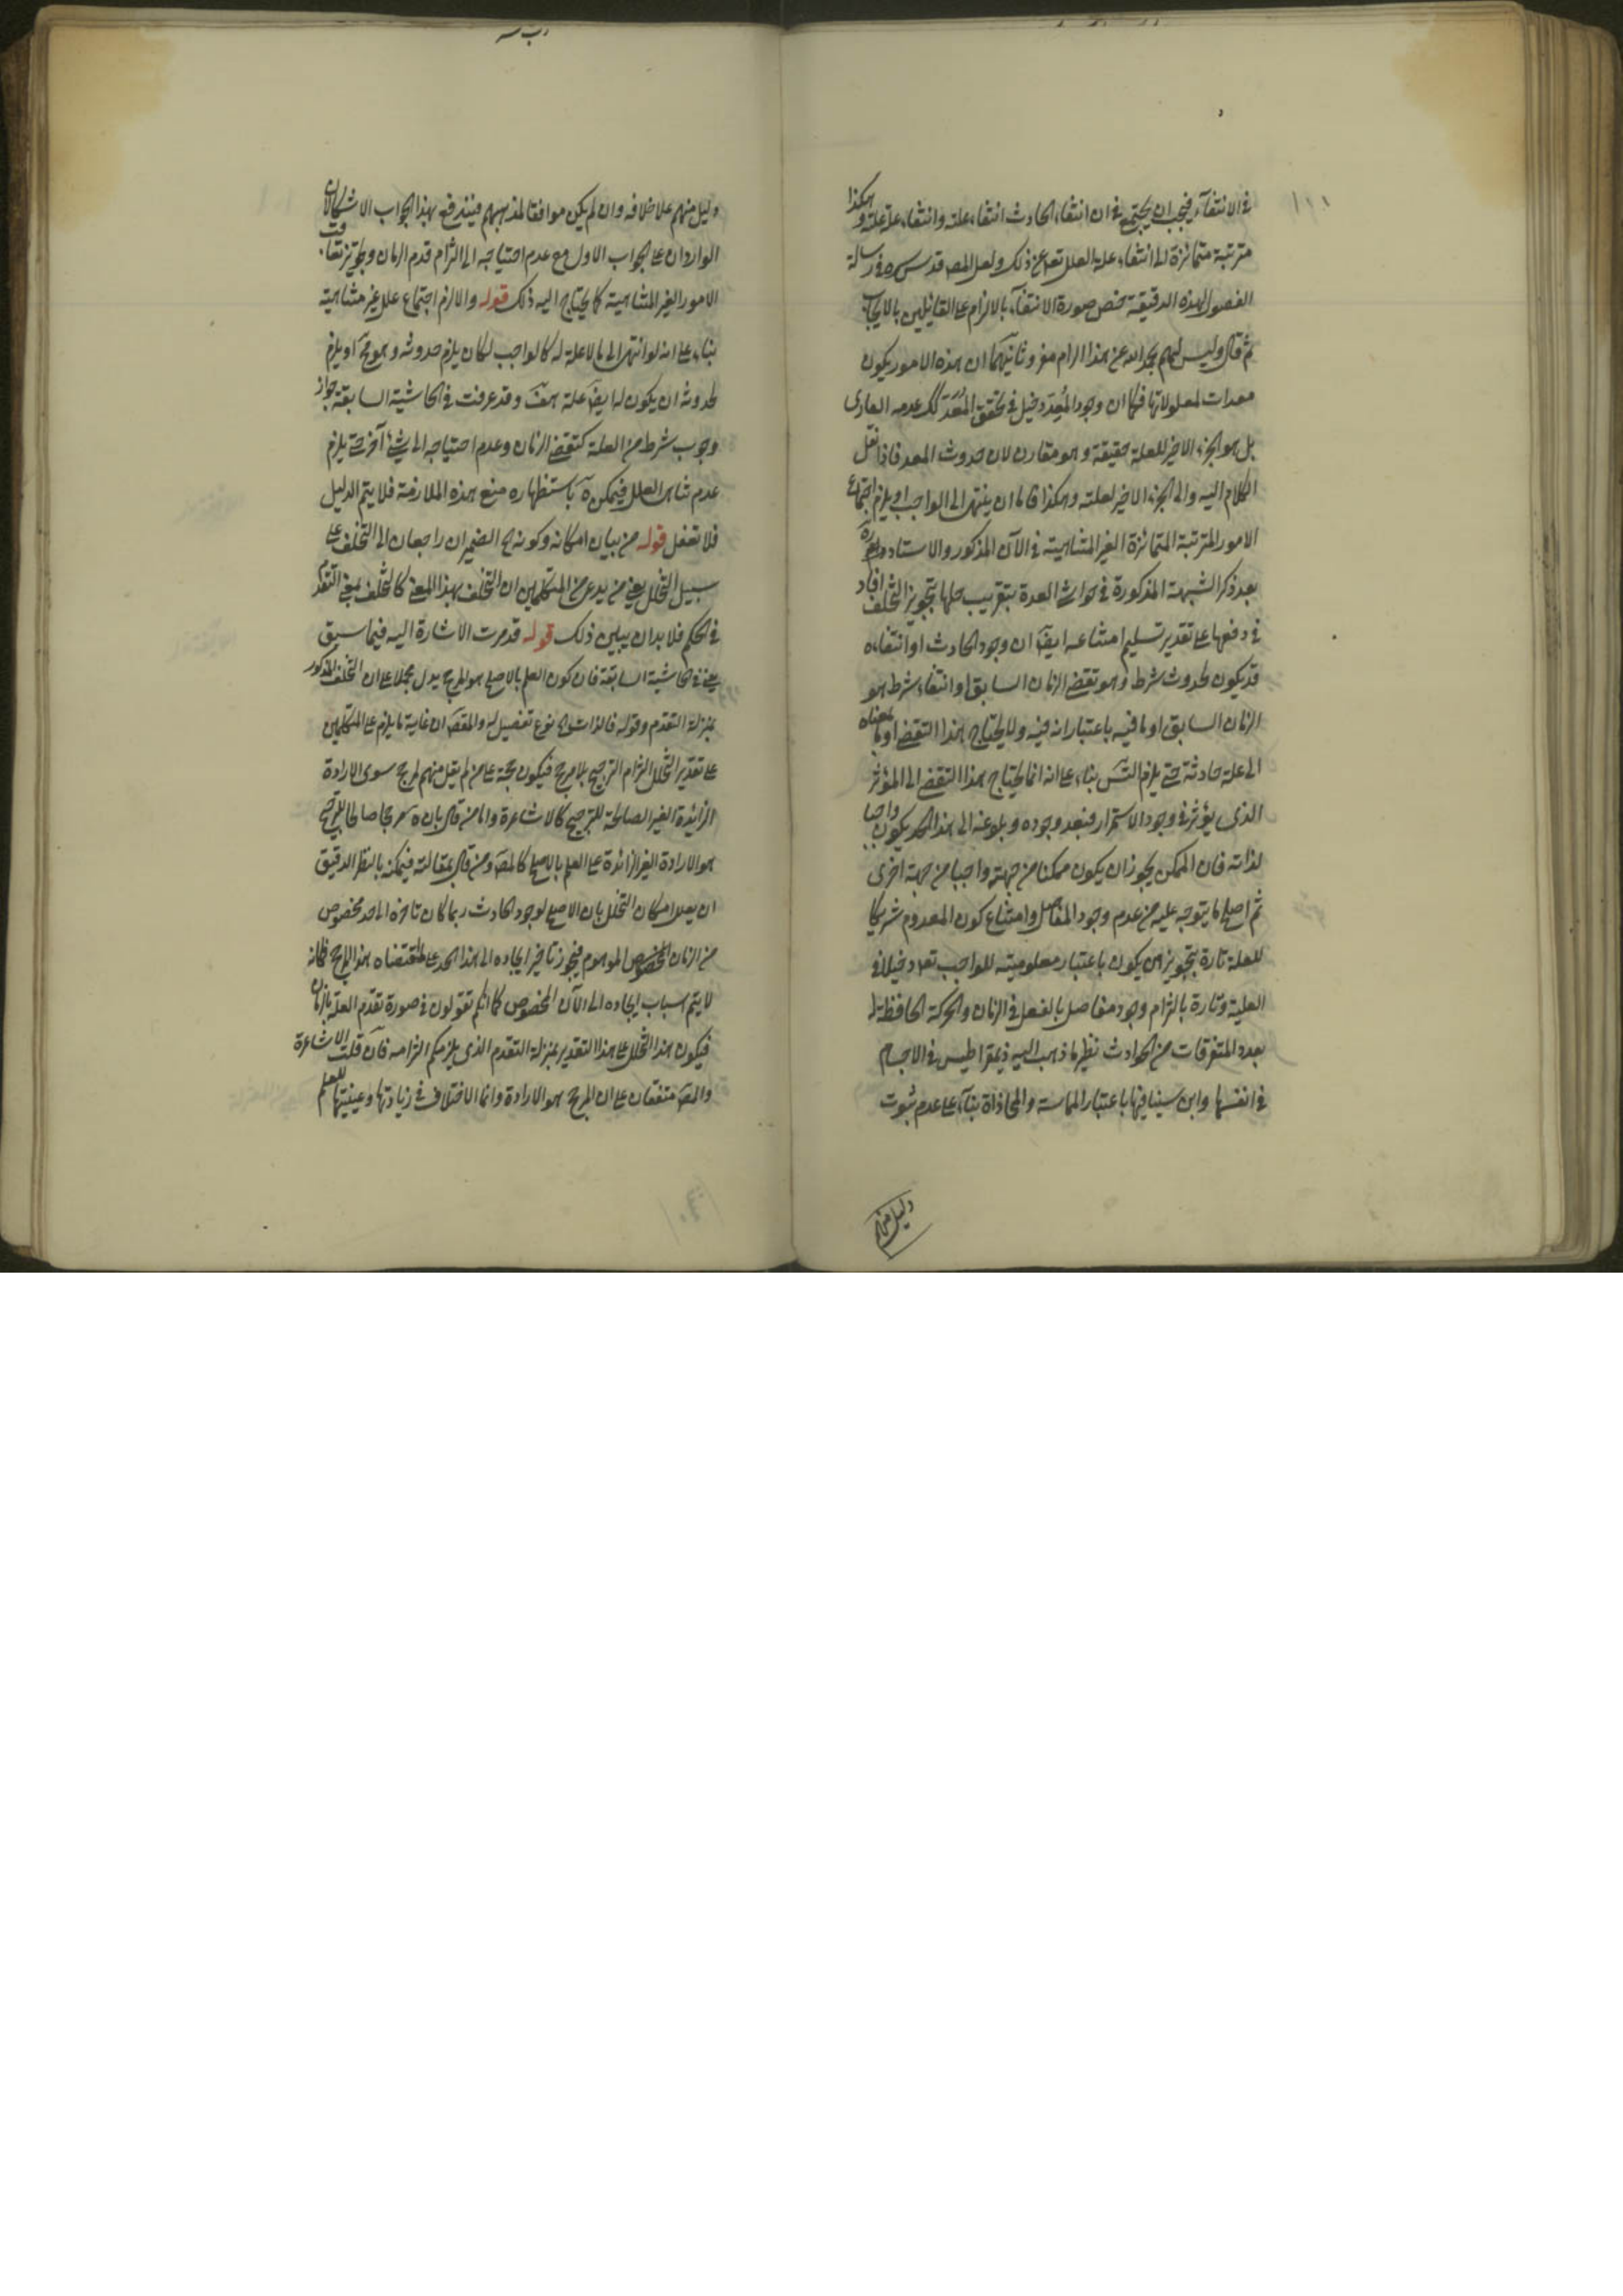 في الانتفاء فيجب ان يجتمع في ان انتفاء الحادث انتفاء علته وانتفاء علة علته وهكذا
مترتبة متمايزة الى انتفاء علة العلل تعه عن ذلك ولعل المصـ قدس سره في رسالة
الفصول لهذه الدقيقة خص صورة الانتفاء بالالزام على القائلين بالايجاب
ثم قال وليس لهم بحد الله عن هذا الالزام مفر وثانيهما ان هذه الامور يكون
معدات لمعلولاتها فكما ان وجود المُعِدّ دخيل في تحقق المُعَدّ كك عدمه الطارى
بل هو الجزء الاخير للعلة حقيقة وهو مقارن لان حدوث المعد فاذا نقل
الكلام اليه والى الجزء الاخير لعلته وهكذا فاما ان ينتهى الى الواجب او يلزم اجتماع
الامور المترتبة المتمايزة الغير المتناهية في الآن المذكور والاستاد دام ظله
بعد ذكر الشبهة المذكورة في حواشى العدة بتقريب حلها بتجويز التخلف افاد
في دفعها على تقدير تسليم امتناعه ايضا ان وجود الحادث او انتفاءه
قد يكون لحدوث شرط وهو تقضى الزمان السابق او انتفاء شرط هو
الزمان السابق او ما فيه باعتبار انه فيه ولا يحتاج هذا التقضى او ما بمعناه
الى علة حادثة حتى يلزم التس بناء على انه انما يحتاج هذا التقضى الى المؤثر
الذى يؤثر في وجود الاستمرار فبعد وجوده وبلوغه الى هذا الحد يكون واجبا
لذاته فان الممكن يجوز ان يكون ممكنا من جهة واجبا من جهة اخرى
ثم اصلح ما يتوجه عليه من عدم وجود المفاصل وامتناع كون المعدوم شريكا
للعلة تارة بتجويز ان يكون باعتبار معلوميته للواجب تعه دخيلا في
العلية وتارة بالتزام وجود مفاصل بالفعل في الزمان والحركة الحافظة له
بعدد المتفرقات من الحوادث نظير ما ذهب اليه ذيمقراطيس في الاجسام
في انفسها وابن سينا فيها باعتبار المماسة والمحاذاة بناء على عدم ثبوت
دليل منهم
دليل منهم على خلافه وان لم يكن موافقا لمذهبهم فيندفع بهذا الجواب الاشكالان
الواردان على الجواب الاول مع عدم احتياجه الى التزام قدم الزمان وتجويز تعاقب
الامور الغير المتناهية كما يحتاج اليه ذلك قوله والا لزم اجتماع علل غير متناهية
بناء على انه لو انتهى الى ما لا علة له كالواجب لكان يلزم حدوثه وهو مح او يلزم
لحدوثه ان يكون له ايضا علة هف وقد عرفت في الحاشية السابقة جواز
وجوب شرط من العلة كتقضى الزمان وعدم احتياجه الى شئ آخر حتى يلزم
عدم تناهى العلل فيمكن باستظهاره منع هذه الملازمة فلا يتم الدليل
فلا تغفل قوله من بيان امكانه وكونه الضميران راجعان الى التخلف على
سبيل التخلل يعنى من يدعى من المتكلمين ان التخلف بهذا المعنى كالتخلف بمعنى التقدم
في الحكم فلا بد ان يبين ذلك قوله قد مرت الاشارة اليه فيما سبق
يعنى في الحاشية السابقة فان كون العلم بالاصلح هو المرجح يدل مجملا على ان التخلف المذكور
بمنزلة التقدم وقوله فالذات نوع تفصيل له والمقصـ ان غاية ما يلزم على المتكلمين
على تقدير التخلل التزام الترجيح بلا مرجح فيكون حجة على من لم يقل منهم لمرجح سوى الارادة
الزائدة الغير الصالحة للترجيح كالاشاعرة واما من قال بان مرجحا صالحا للترجيح
هو الارادة الغير الزائدة على العلم بالاصلح كالمصـ ومن قال بمقالته فيمكنه بالنظر الدقيق
ان يعلل امكان التخلل بان الاصلح لوجود الحادث ربما كان تاخره الى حد مخصوص
من الزمان المخصوص الموهوم فيجوز تاخير ايجاده الى هذا الحد على مقتضاه هذا المرجح فكانه
لا يتم اسباب ايجاده الى الآن المخصوص كما انكم تقولون في صورة تقدم العلة بالزمان
فيكون هذا التخلل على هذا التقدير بمنزلة التقدم الذى يلزمكم التزامه فان قلت الاشاعرة
والمصـ متفقان على ان المرجح هو الارادة وانما الاختلاف في زيادتها وعينيتها للعلم